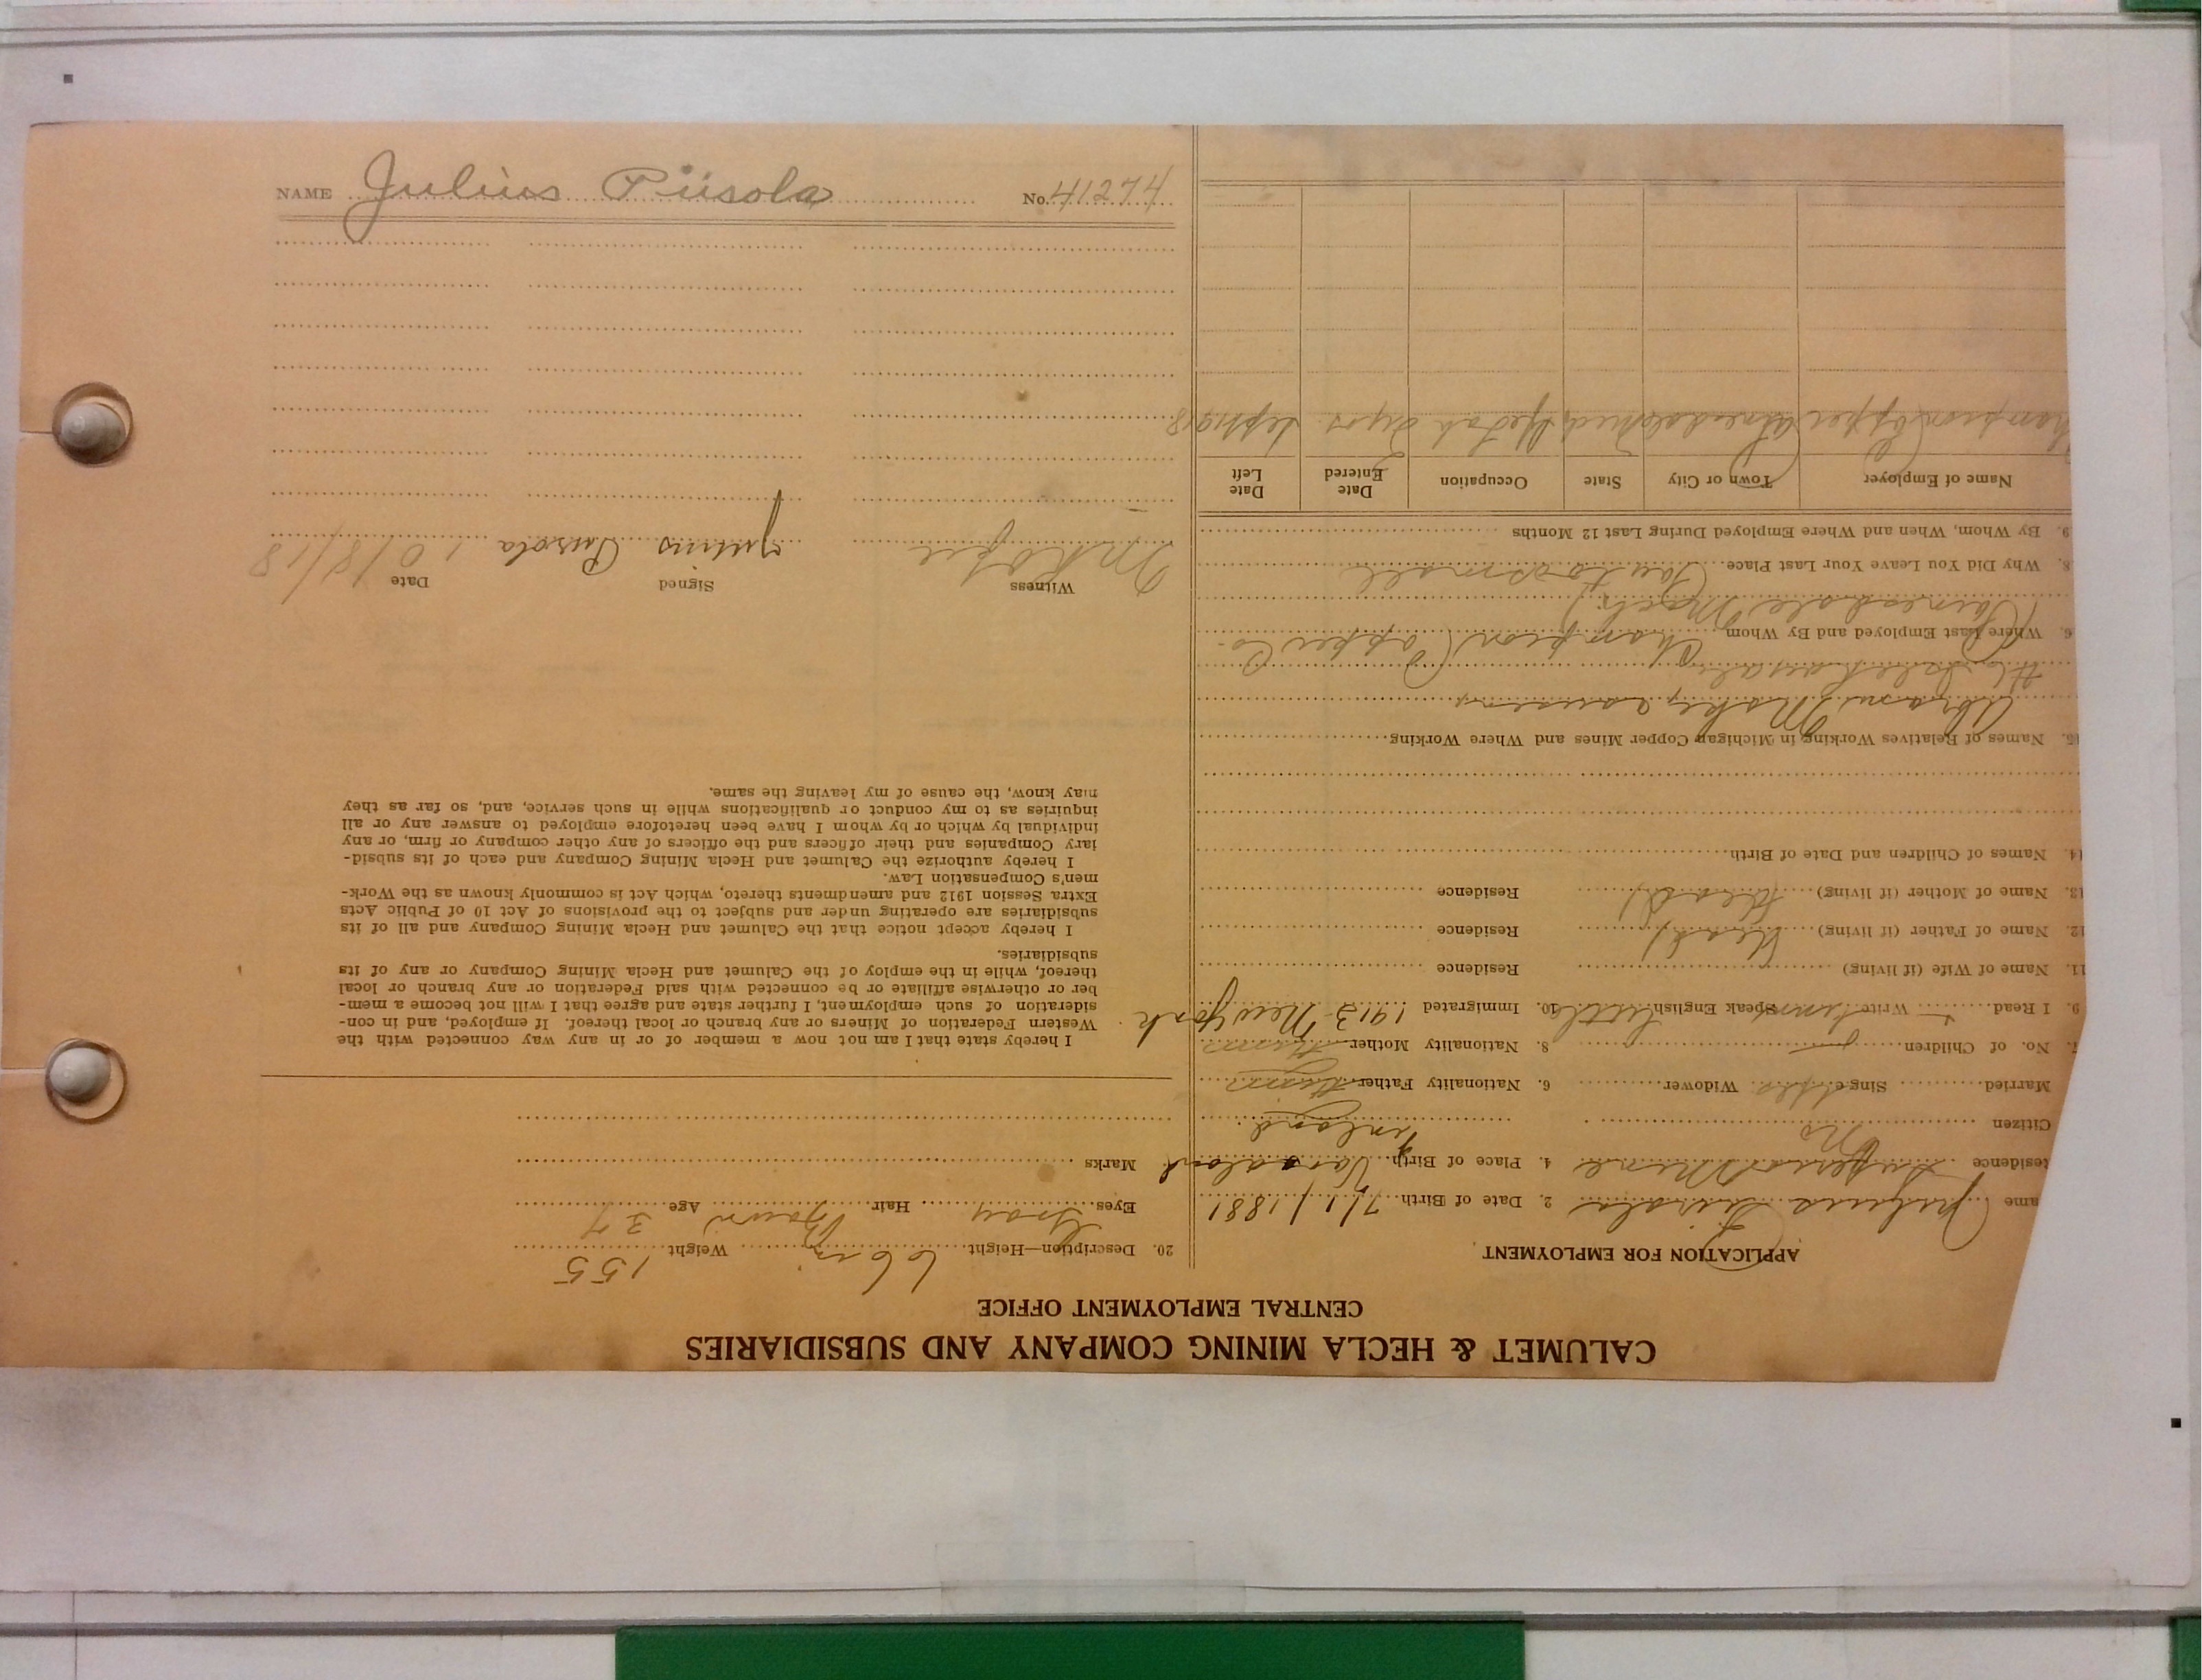 NAME Julius Piisola No. 41274
CALUMET & HECLA MINING COMPANY AND SUBSIDIARIES
CENTRAL EMPLOYMENT OFFICE
APPLICATION FOR EMPLOYMENT
ame Julius Piisola 2. Date of Birth 7/1/1881
Residence Superior Mine 4. Place of Birth Vasaland
Finland
Citizen No
Married Single Yes Widower 6. Nationality Father Finn
7. No. of Children 8. Nationality Mother Finn
9. I Read Write Finn Speak English Little 10. Immigrated 1913 New York
11. Name of Wife (if living) Residence
12. Name of Father (if living) Dead Residence
13. Name of Mother (if living) Dead Residence
14. Names of Children and Date of Birth
15. Names of Relatives Working in Michigan Copper Mines and Where Working
Abram Maki, cousin,
6. Where Last Employed and By Whom Champion Copper Co.
Painesdale Mich.
8. Why Did You Leave Your Last Place Pay to small
9. By Whom, When and Where Employed During Last 12 Months
Name of Employer Town or City State Occupation Date Entered Date Left
hampion Copper Painesdale Mich 2 yrs Sept 1918
20. Description—Height 66 in Weight 155
Eyes Gray Hair Brown Age 37
Marks
I hereby state that I am not now a member of or in any way connected with the
Western Federation of Miners or any branch or local thereof. If employed, and in con-
sideration of such employment, I further state and agree that I will not become a mem-
ber or otherwise affiliate or be connected with said Federation or any branch or local
thereof, while in the employ of the Calumet and Hecla Mining Company or any of its
subsidiaries.
I hereby accept notice that the Calumet and Hecla Mining Company and all of its
subsidiaries are operating under and subject to the provisions of Act 10 of Public Acts
Extra Session 1912 and amendments thereto, which Act is commonly known as the Work-
men's Compensation Law.
I hereby authorize the Calumet and Hecla Mining Company and each of its subsid-
iary Companies and their officers and the officers of any other company or firm, or any
individual by which or by whom I have been heretofore employed to answer any or all
inquiries as to my conduct or qualifications while in such service, and, so far as they
may know, the cause of my leaving the same.
Witness Signed Date
Julius Piisola 10/8/18